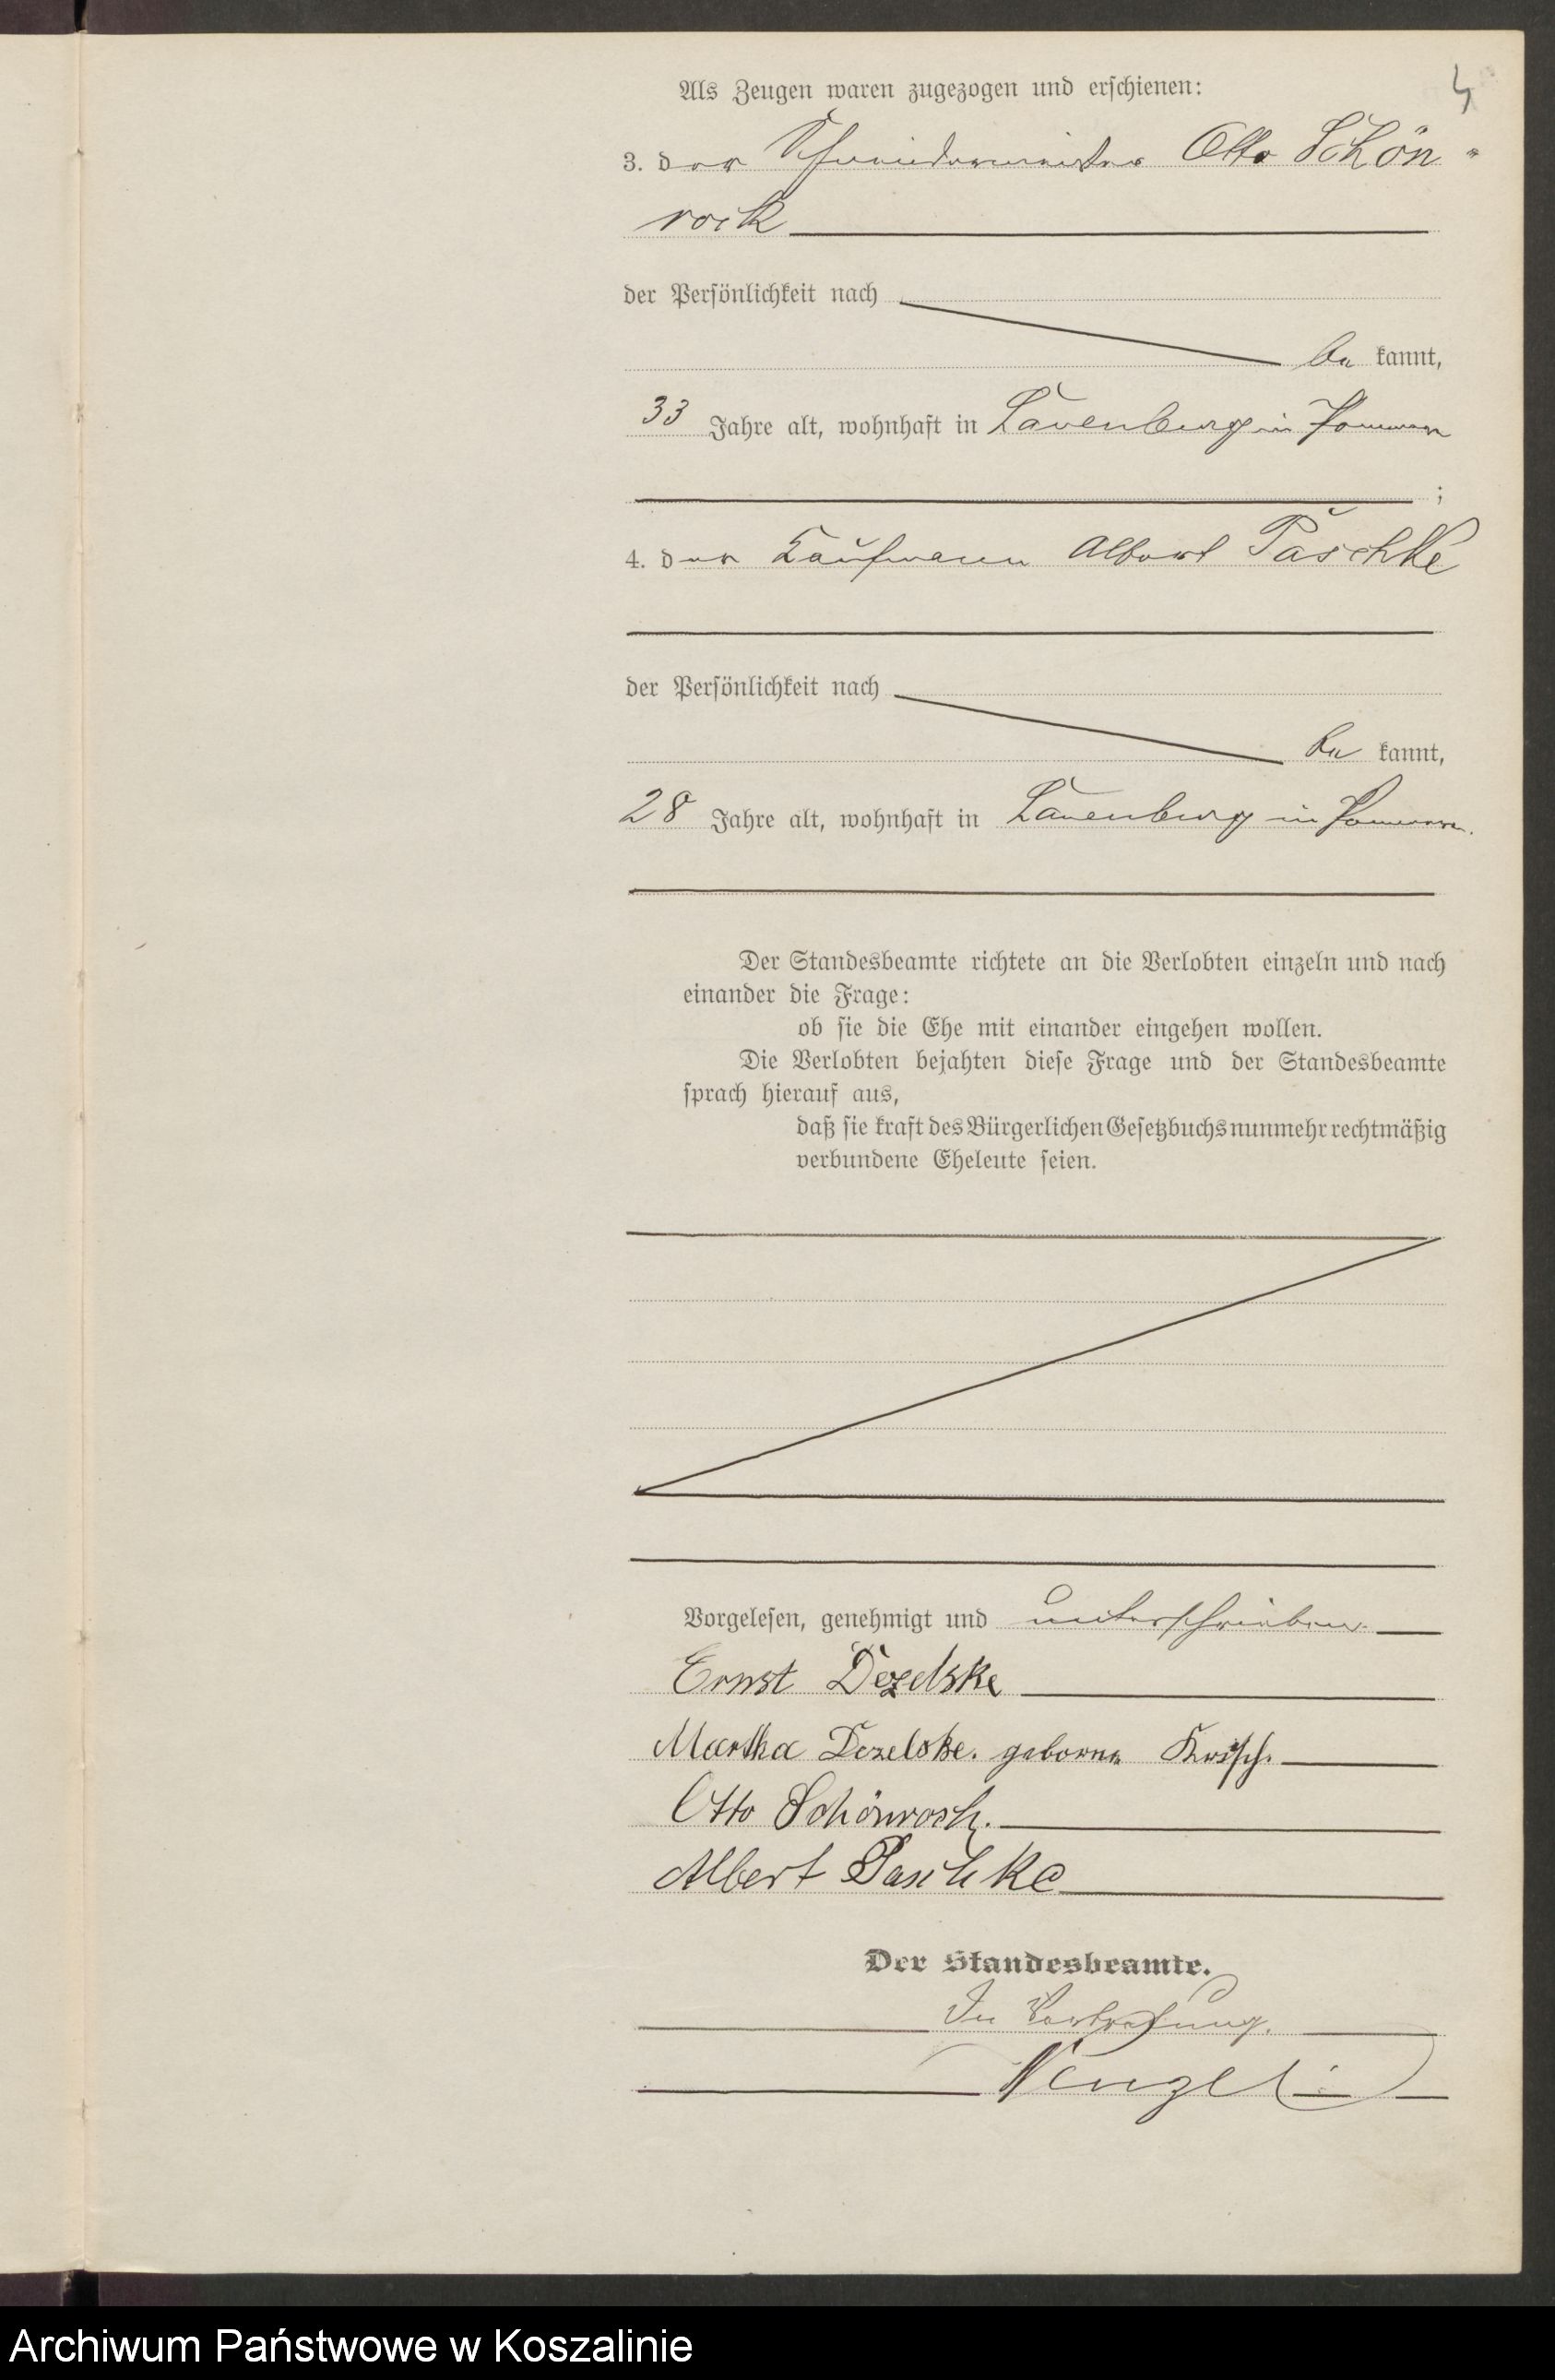 Als Zeugen waren zugezogen und erschienen:
3. der Schneidermeister Otto Schön-
rock
der Persönlichkeit nach
be kannt,
33 Jahre alt, wohnhaft in Lauenburg in Pommern
;
4. der Kaufmann Albert Paschke
der Persönlichkeit nach
be kannt,
28 Jahre alt, wohnhaft in Lauenburg in Pommern.
Der Standesbeamte richtete an die Verlobten einzeln und nach
einander die Frage:
ob sie die Ehe mit einander eingehen wollen.
Die Verlobten bejahten diese Frage und der Standesbeamte
sprach hierauf aus,
daß sie kraft des Bürgerlichen Gesetzbuchs nunmehr rechtmäßig
verbundene Eheleute seien.
Vorgelesen, genehmigt und unterschrieben.
Ernst Dezelske
Martha Dezelske. geborene
Otto Schönrock.
Albert Paschke
Der Standesbeamte.
In Vertretung.
Wenzel
Archiwum Państwowe w Koszalinie